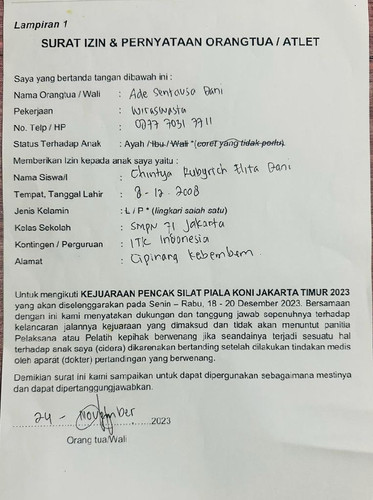 Lampiran 1
SURAT IZIN & PERNYATAAN ORANGTUA / ATLET
Saya yang bertanda tangan dibawah ini :
Nama Orangtua / Wali : Ade Sentausa Dani
Pekerjaan : Wiraswasta
No. Telp / HP : 0877 7031 7911
Status Terhadap Anak : Ayah / Ibu / Wali *(coret yang tidak perlu).
Memberikan Izin kepada anak saya yaitu :
Nama Siswa/I : Chintya Rubyrich Elita Dani
Tempat, Tanggal Lahir : 8 - 12 . 2008
Jenis Kelamin : L / P * (lingkari salah satu)
Kelas Sekolah : SMPN 71 Jakarta
Kontingen / Perguruan : ITK Indonesia
Alamat : Cipinang Kebembem
Untuk mengikuti KEJUARAAN PENCAK SILAT PIALA KONI JAKARTA TIMUR 2023
yang akan diselenggarakan pada Senin – Rabu, 18 - 20 Desember 2023. Bersamaan
dengan ini kami menyatakan dukungan dan tanggung jawab sepenuhnya terhadap
kelancaran jalannya kejuaraan yang dimaksud dan tidak akan menuntut panitia
Pelaksana atau Pelatih kepihak berwenang jika seandainya terjadi sesuatu hal
terhadap anak saya (cidera) dikarenakan bertanding setelah dilakukan tindakan medis
oleh aparat (dokter) pertandingan yang berwenang.
Demikian surat ini kami sampaikan untuk dapat dipergunakan sebagaimana mestinya
dan dapat dipertanggungjawabkan.
24 - November 2023
Orang tua/Wali